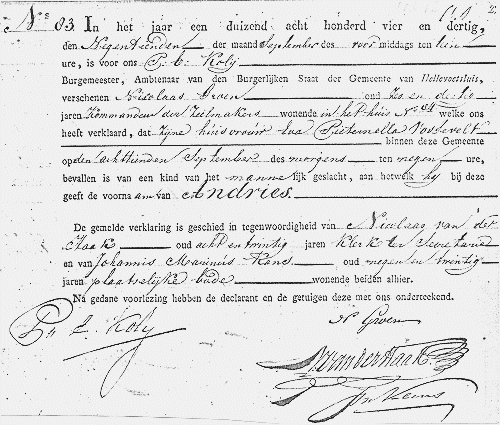 N° 83. In het jaar een duizend acht honderd vier en dertig,
den Negentienden der maand September des voor middags ten tien
ure, is voor ons P. C. Koly
Burgemeester, Ambtenaar van den Burgerlijken Staat der Gemeente van Hellevoetsluis,
verschenen Nicolaas Groen oud Zes en dertig
jaren Kommandeur der Zeilmakers wonende in het huis N° 84 welke ons
heeft verklaard, dat zijne huisvrouw Eva Pieternella
binnen deze Gemeente
op den achttienden September des morgens ten negen ure,
bevallen is van een kind van het mannelijk geslacht, aan hetwelk hij bij deze
geeft de voornaam van Andries.
De gemelde verklaring is geschied in tegenwoordigheid van Nicolaas van der
Haak oud acht en twintig jaren Klerk ter Secretarie
en van Johannis Marinus oud negen en twintig
jaren plaatselijke bode wonende beiden alhier.
Na gedane voorlezing hebben de declarant en de getuigen deze met ons onderteekend.
N Groen
P. C. Koly
N. van der Haak